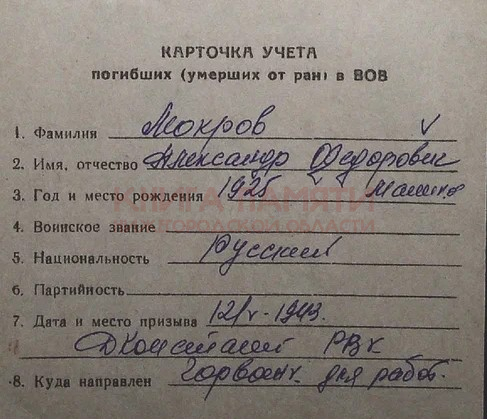 КАРТОЧКА УЧЕТА
погибших (умерших от ран) в ВОВ
1. Фамилия Мокров
2. Имя, отчество Александр Федорович
3. Год и место рождения 1925
КНИГА ПАМЯТИ
НИЖЕГОРОДСКОЙ ОБЛАСТИ
4. Воинское звание
5. Национальность Русский
6. Партийность
7. Дата и место призыва 12/V-1943.
РВК
8. Куда направлен Горвоен. для работ.